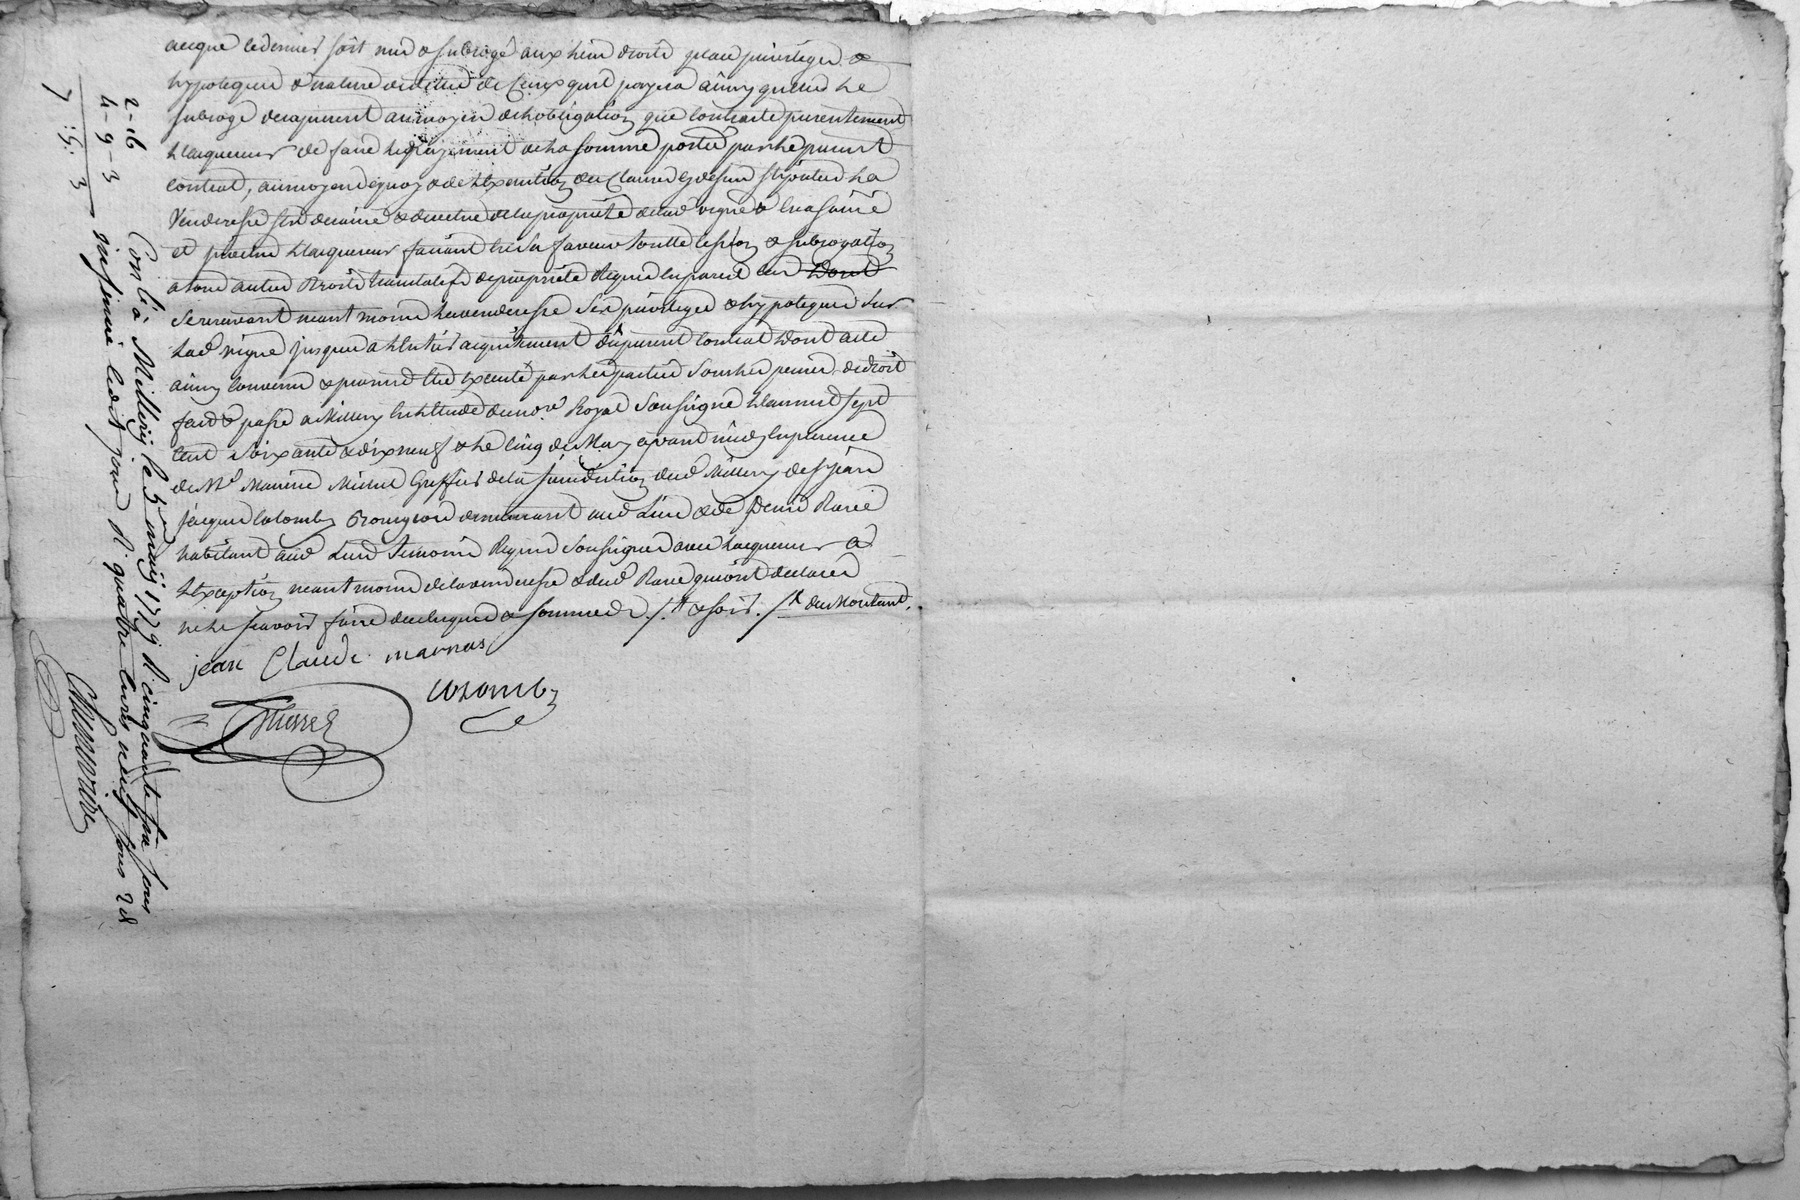 aceque ledernier soit mis & subrogé aux lieu droits place privileges &
hypoteques & nature de dettes de Ceux quil payera ainsy quelle le
subroge desapresent aumoyen delobligation que contracte presentement
Lacquereur de faire le payement de la somme portée par le present
contrat, aumoyen dequoy & de Lexecution des Clauses cy dessus stipulées La
Venderesse sest demise & devetue de la proprieté de lad vigne & en a saisie
et pretue Lacquereur faisant en sa faveur toutte cession & subrogation
atous autres Droits translatifs de proprieté Requis en pareil cas
se reservant neantmoins la venderesse ses privileges & hypoteques sur
Lad vigne jusques a Lentier acquittement du present contrat Dont acte
ainsy convenu & promis etre executé par les parties sous les peines de droit
fait & passé a Millery en Letude du nore Royal soussigné Lan mil sept
cent soixante & dix neuf & le cinq de May avant midy en presence
de Me Michel Greffier de la jurisdiction dud Millery de sr jean
jacques colomby Bourgeois demeurant aud Lieu & de Denis
habitant aud Lieu temoins Requis soussignés avec Lacquereur a
Lexception neantmoins de la venderesse & dud qui ont declaré
ne le sçavoir faire de ce enquis & sommés
jean Claude marnas
colomby
Con lé à Millery le 5 may 1779 R cinquante six sous
insinué ledit jour R. quatre livres neuf sous 3 d
2-16
4-9-3
7:5:3